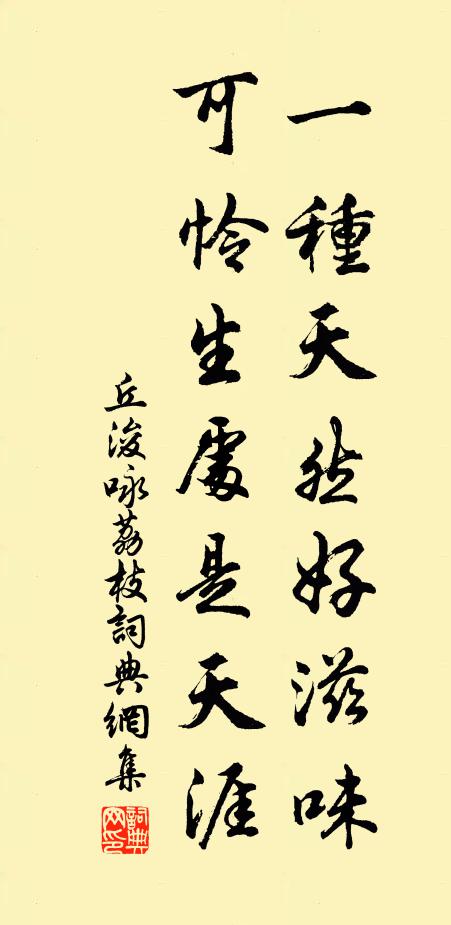 一種天然好滋味
可憐生處是天涯
丘浚咏荔枝詞典網集
詞典網印